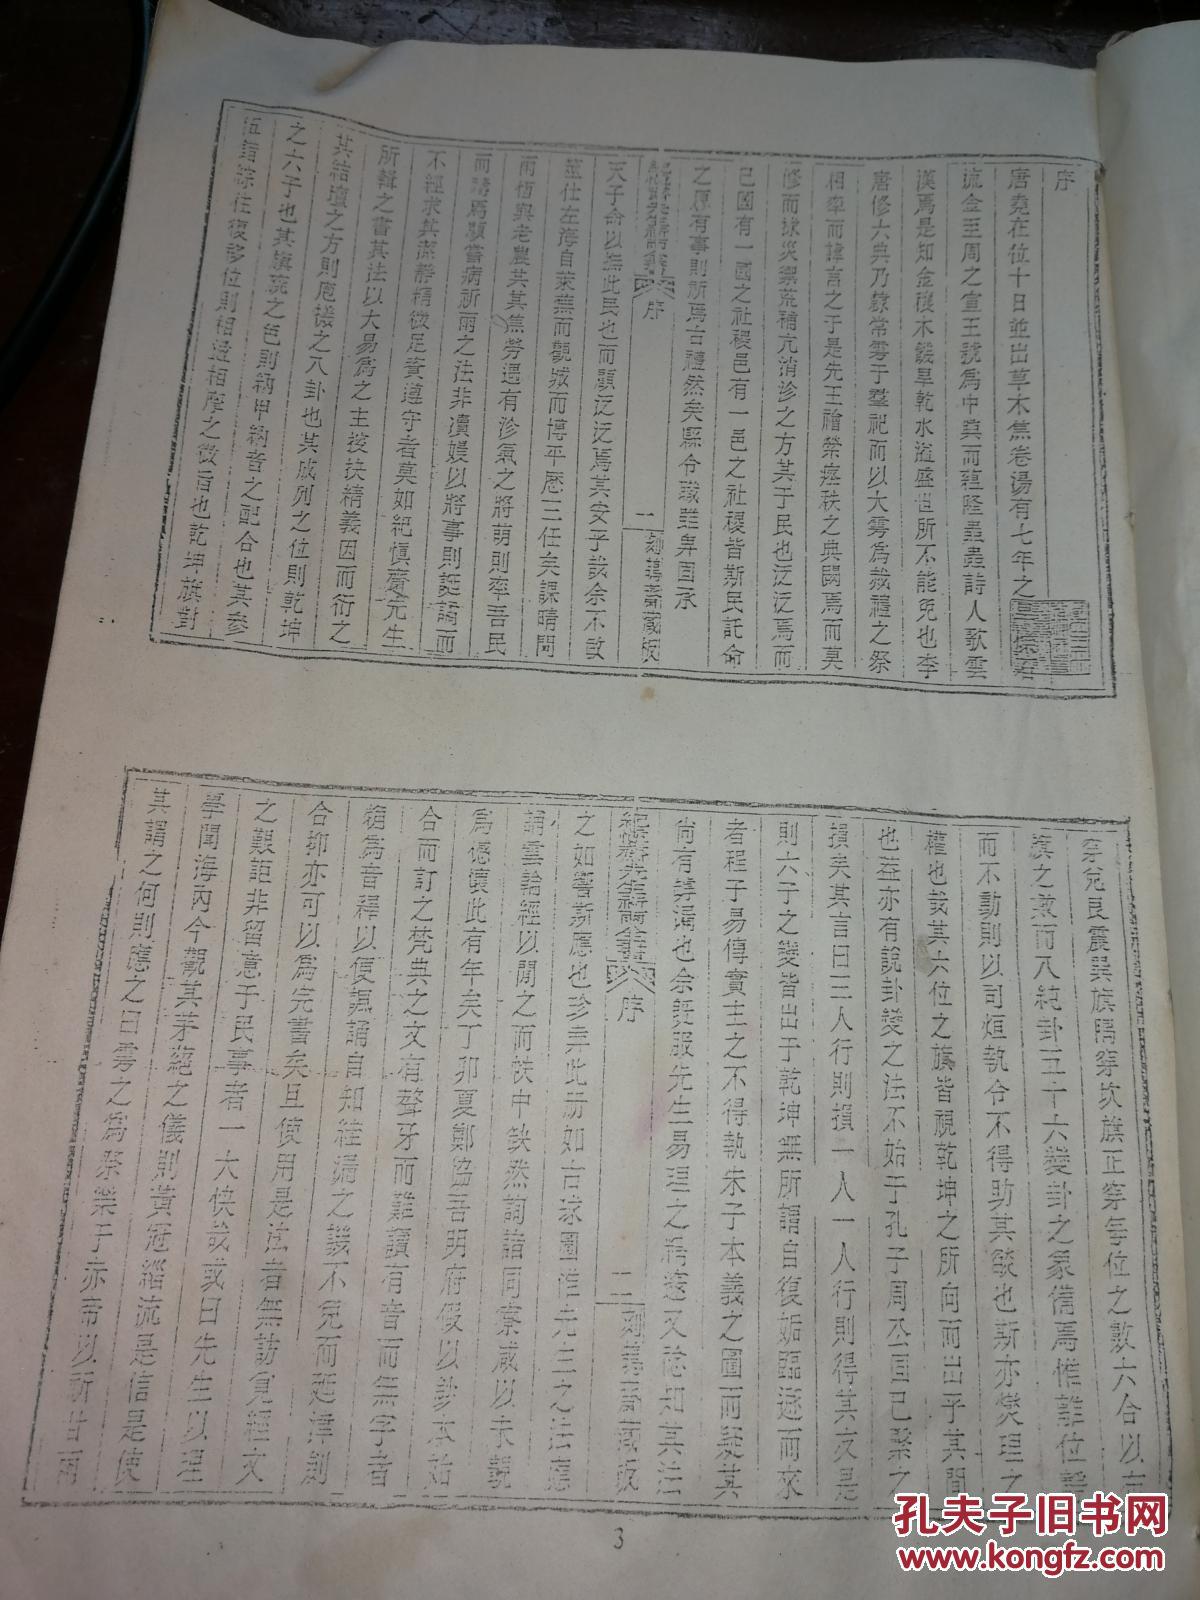 序
唐堯在位十日並出草木焦卷湯有七年之
流金至周之宣王號為中興而蘊隆蟲蟲詩人歌雲
漢焉是知金穰木饑旱乾水溢盛世所不能免也李
唐修六典乃隸常雩于羣祀而以大雩為裁禮之祭
相率而諱言之于是先王禬禜瘞秩之典闕焉而莫
修而救災禦荒補亢消沴之方其于民也泛泛焉而
已國有一國之社稷邑有一邑之社稷皆斯民託命
之原有事則所焉古禮然矣縣令職雖卑固承
序
一
天子命以撫此民也而顧泛泛焉其安乎哉余不敏
筮仕左海自萊蕪而觀城而博平歷三任矣課晴問
雨恆與老農共其焦勞遇有沴氣之將萌則率吾民
而禱焉顧嘗病祈雨之法非瀆媟以將事則誕譎而
不經求其潔靜精微足資遵守者莫如紀慎齋先生
所輯之書其法以大易為之主扶精義因而衍之
其結壇之方則庖犧之八卦也其成列之位則乾坤
之六子也其旗旒之色則納甲納音之配合也其參
伍錯綜往復移位則相盪相摩之微旨也乾坤旗對
穿兌艮震巽旗隅穿坎旗正穿每位之數六合以
旗之數而八純卦五十六變卦之象備焉惟離位
而不動則以司烜執令不得助其燄也斯亦燮理之
權也哉其六位之旗皆視乾坤之所向而出乎其間
也益亦有說卦變之法不始于孔子周公固已繫之
損矣其言曰三人行則損一人一人行則得其友是
則六子之變皆出于乾坤無所謂自復姤臨遯而來
者程子易傳實主之不得執朱子本義之圖而疑其
尚有滲漏也余既服先生易理之精邃又稔知其法
紀慎齋先生祈雨全書
序
二
之如響斯應也珍弆此冊如古球圖惟先生之法應
誦雲論經以開之而帙中缺然詢諸同寮咸以未覩
為憾懷此有年矣丁卯夏鄭協吾明府假以鈔本始
合而訂之梵典之文有聲牙而難讀有音而無字者
箱為音釋以便諷誦自知絓漏之譏不免而延津劍
合抑亦可以為完書矣且使用是法者無訪覓經文
之艱詎非留意于民事者一大快哉或曰先生以理
學聞海內今觀其茅蕝之儀則黃冠緇流是信是使
其謂之何則應之曰雩之為祭樂于赤帝以祈甘雨
3
孔夫子旧书网
www.kongfz.com